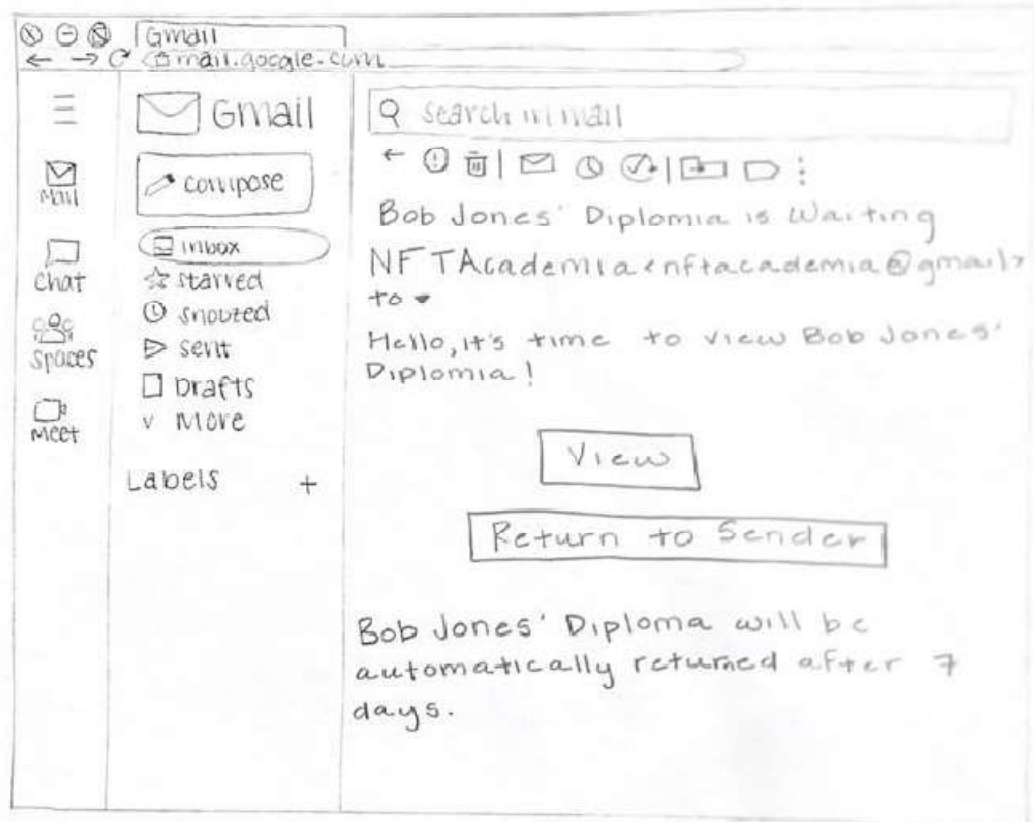 Gmail
mail.google.com
Mail
Chat
Spaces
Meet
Gmail
compose
inbox
starred
snoozed
sent
Drafts
v More
Labels +
search in mail
Bob Jones' Diplomia is Waiting
NFTAcademia <nftacademia@gmail>
to
Hello, it's time to view Bob Jones'
Diplomia!
View
Return to Sender
Bob Jones' Diploma will be
automatically returned after 7
days.